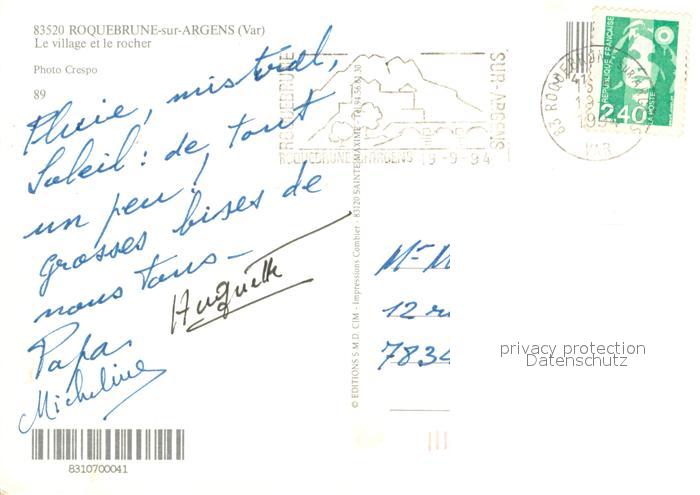 83520 ROQUEBRUNE-sur-ARGENS (Var)
Le village et le rocher
Photo Crespo
89
Pluie, mistral,
Soleil : de tout
un peu !
Grosses bises de
nous tous –
Huguette
Papa
Micheline
8310700041
© EDITIONS S.M.D. CIM - Impressions Combier - 83120 SAINTE MAXIME - Tél. 94.96.61.30
ROQUEBRUNE
SUR-ARGENS
ROQUEBRUNE S/ARGENS 19-9-94
83 ROQUEBRUNE
VAR
REPUBLIQUE FRANÇAISE
2,40
LA POSTE
Mr M
12 ru
7834
privacy protection
Datenschutz